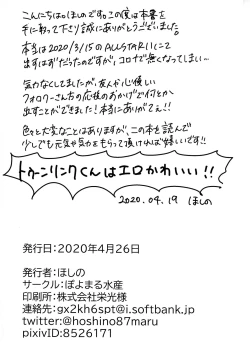 こんにちは。ほしのです。この度は本書を
手に取って下さり誠にありがとうございました。
本当は2020/3/15のALLSTARにて
出すはずだったのですが、コロナで無くなってしまい…
気力なくしてましたが、友人や心優しい
フォロワーさん方の応援のおかげで何とか
出すことができました!本当にありがてぇ!!
色々と大変なことはありますが、この本を読んで
少しでも元気や気力をもらって頂ければ嬉しいです!!
トゥーンリンクくんはエロかわいい!!
2020.04.19 ほしの
発行日:2020年4月26日
発行者:ほしの
サークル:ぽよまる水産
印刷所:株式会社栄光様
連絡先:gx2kh6spt@i.softbank.jp
twitter:@hoshino87maru
pixivID:8526171